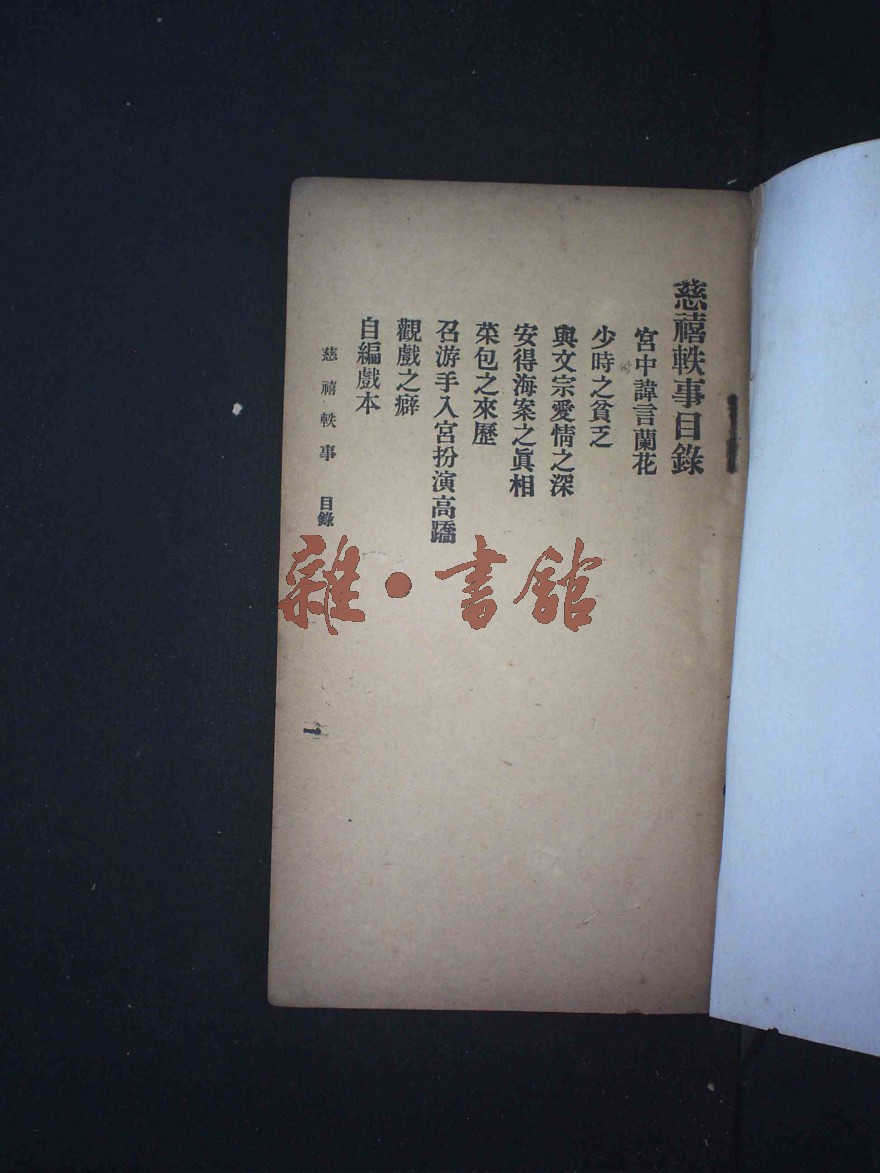 慈禧軼事目錄
宮中諱言蘭花
少時之貧乏
與文宗愛情之深
安得海案之眞相
菜包之來歷
召游手入宮扮演高蹻
觀戲之癖
自編戲本
慈禧軼事 目錄
一
雜·書舘